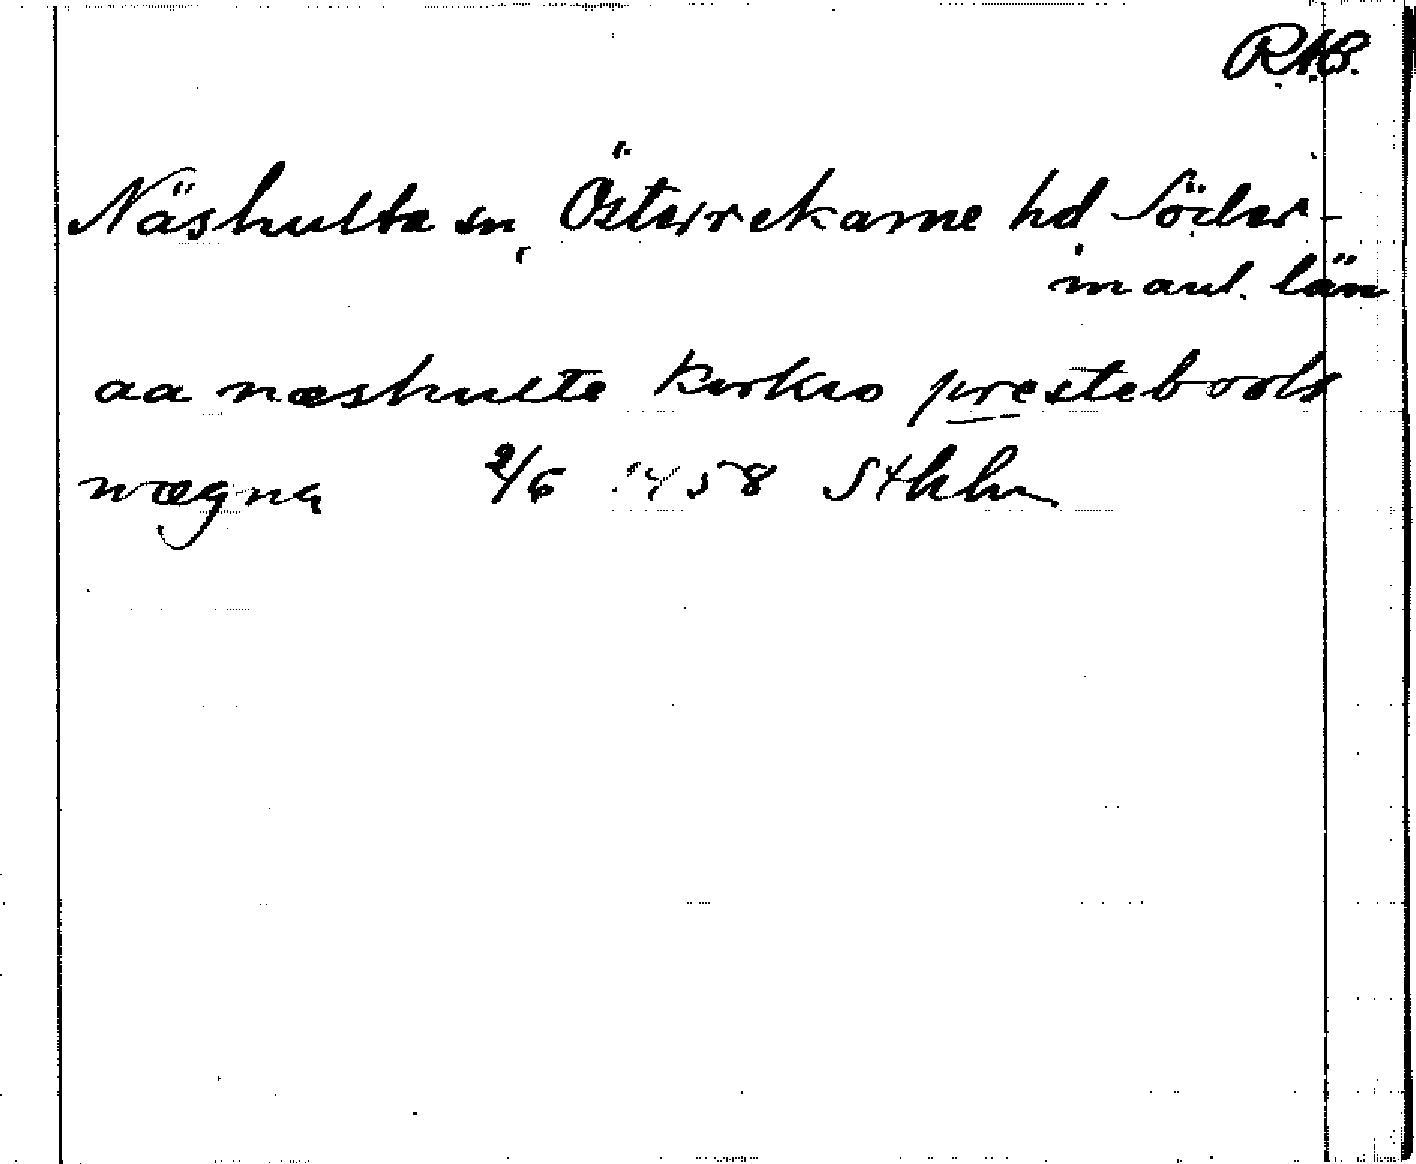 RAP.
Näshulta sn, Österrekarne hd Söder-
manl. län
aa næshulte kirkio prestebools
wægna 2/6 1458 Sthlm